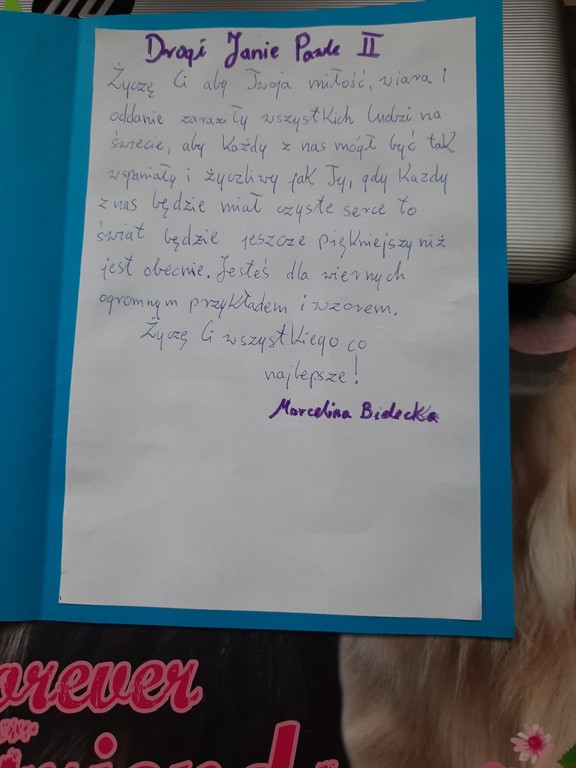 Drogi Janie Pawle II
Życzę Ci aby Twoja miłość, wiara i
oddanie zaraziły wszystkich ludzi na
świecie, aby każdy z nas mógł być tak
wspaniały i życzliwy jak Ty, gdy każdy
z nas będzie miał czyste serce to
świat będzie jeszcze piękniejszy niż
jest obecnie. Jesteś dla wiernych
ogromnym przykładem i wzorem.
Życzę Ci wszystkiego co
najlepsze!
Marcelina Bidecka
orever